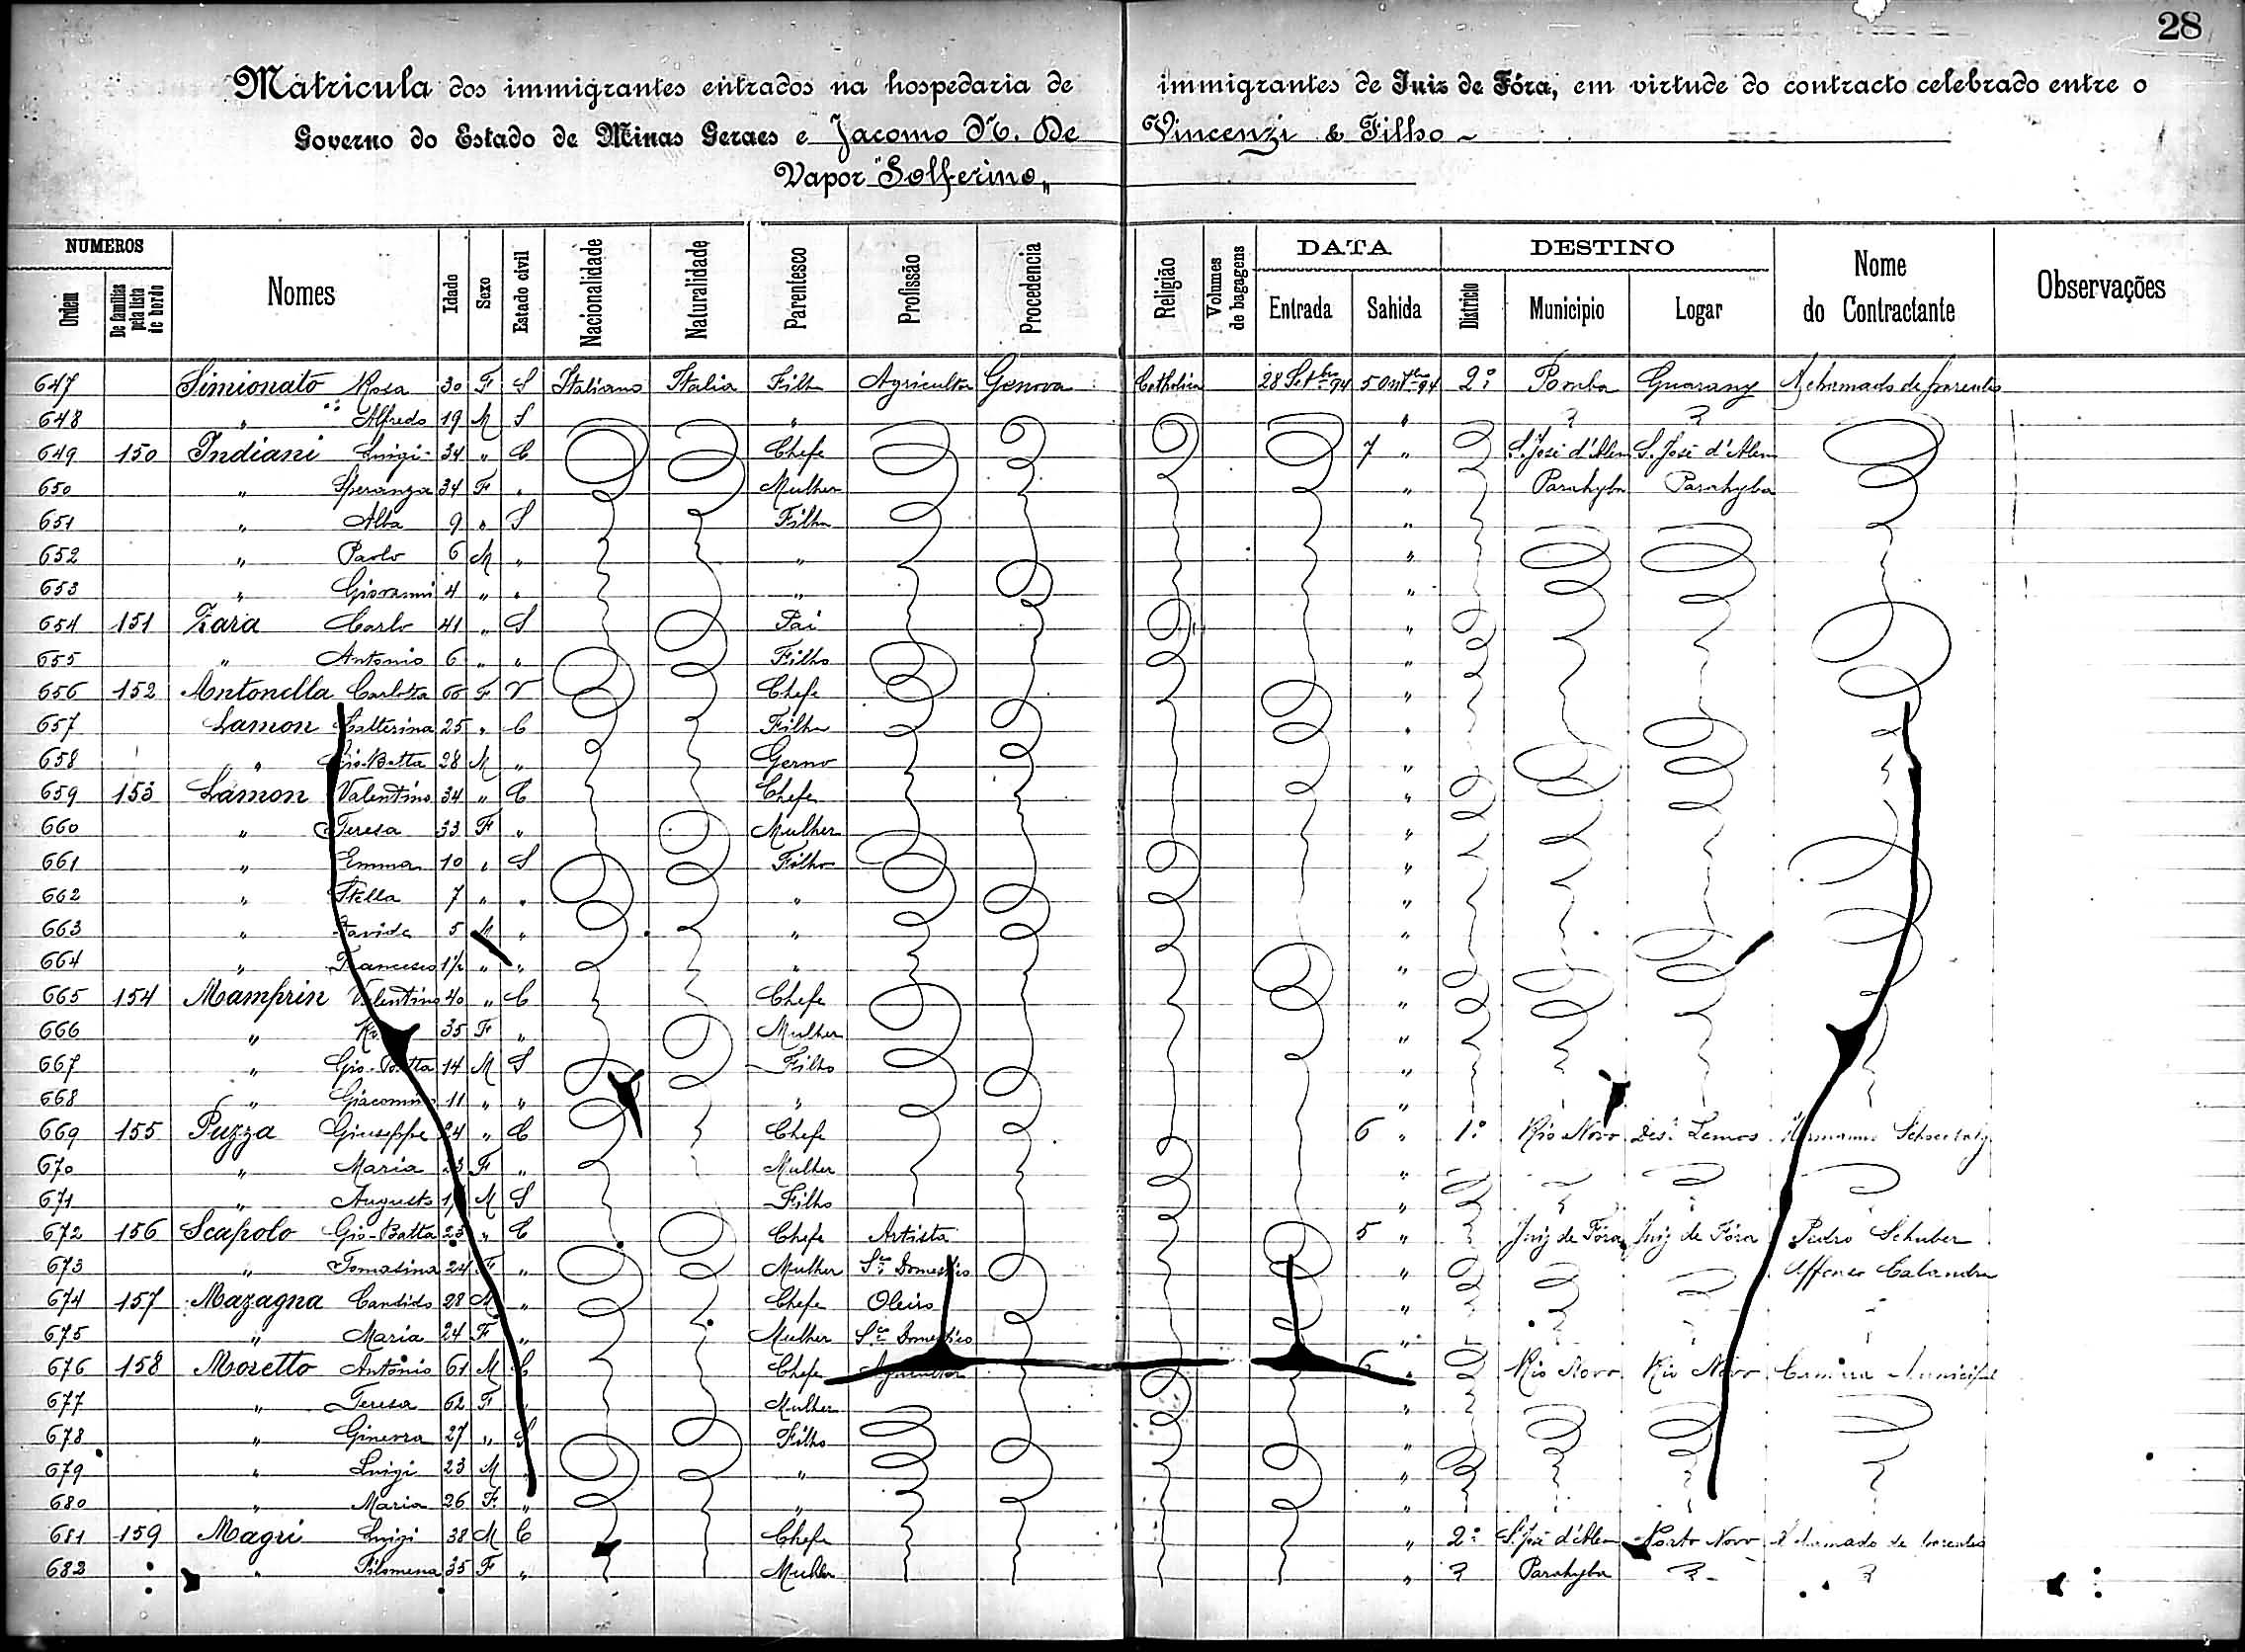 28
Matricula dos immigrantes entrados na hospedaria de immigrantes de Juiz de Fóra, em virtude do contracto celebrado entre o
Governo do Estado de Minas Geraes e Jacomo N. De Vincenzi & Filho
Vapor "Solferino"
NUMEROS DATA DESTINO
Ordem De familias pela lista de bordo Nomes Idade Sexo Estado civil Nacionalidade Naturalidade Parentesco Profissão Procedencia Religião Volumes de bagagens Entrada Sahida Districto Municipio Logar Nome do Contractante Observações
647 Simionato Rosa 30 F S Italiana Italia Filha Agricultor Genova Catholica 28 Setbro 94 5 Outbro 94 2º Pomba Guarany A chamado de parentes
648 " Alfredo 19 M S " "
649 150 Indiani Luigi 34 " C Chefe 7 " S. José d'Alem S. José d'Alem
650 " Speranza 34 F " Mulher " Parahyba Parahyba
651 " Alba 9 " S Filha "
652 " Paolo 6 M " " "
653 " Giovanni 4 " " " "
654 151 Zara Carlo 41 " S Pai "
655 " Antonio 6 " " Filho "
656 152 Antonella Carlotta 66 F V Chefe "
657 Lamon Catterina 25 " C Filha "
658 " Gio-Batta 28 M " Genro "
659 153 Lamon Valentino 34 " C Chefe "
660 " Teresa 33 F " Mulher "
661 " Emma 10 " S Filho "
662 " Stella 7 " " " "
663 " Davide 5 M " " "
664 " Francesco 1½ " " " "
665 154 Mamprin Valentino 40 " C Chefe "
666 " 35 F " Mulher "
667 " Gio-Batta 14 M S Filho "
668 " Giacomino 11 " " " "
669 155 Puzza Giuseppe 24 " C Chefe 6 " 1º Rio Novo Des. Lemos
670 " Maria 23 F " Mulher "
671 " Augusto M S Filho "
672 156 Scapolo Gio-Batta 25 " C Chefe Artista 5 " Juiz de Fóra Juiz de Fóra Pedro Schuber
673 " Tomasina 24 F " Mulher Sço Domestico " Affonso Calandra
674 157 Mazagna Candido 28 M " Chefe Oleiro "
675 " Maria 24 F " Mulher Sço Domestico "
676 158 Moretto Antonio 61 M C Chefe Agricultor 6 " Rio Novo Rio Novo Camara Municipal
677 " Teresa 62 F Mulher "
678 " Ginevra 27 " S Filho "
679 " Luigi 23 M " "
680 " Maria 26 F " " "
681 159 Magri Luigi 38 M C Chefe " 2º S. José d'Alem Porto Novo A chamado de parentes
682 " Filomena 35 F " Mulher " Parahyba